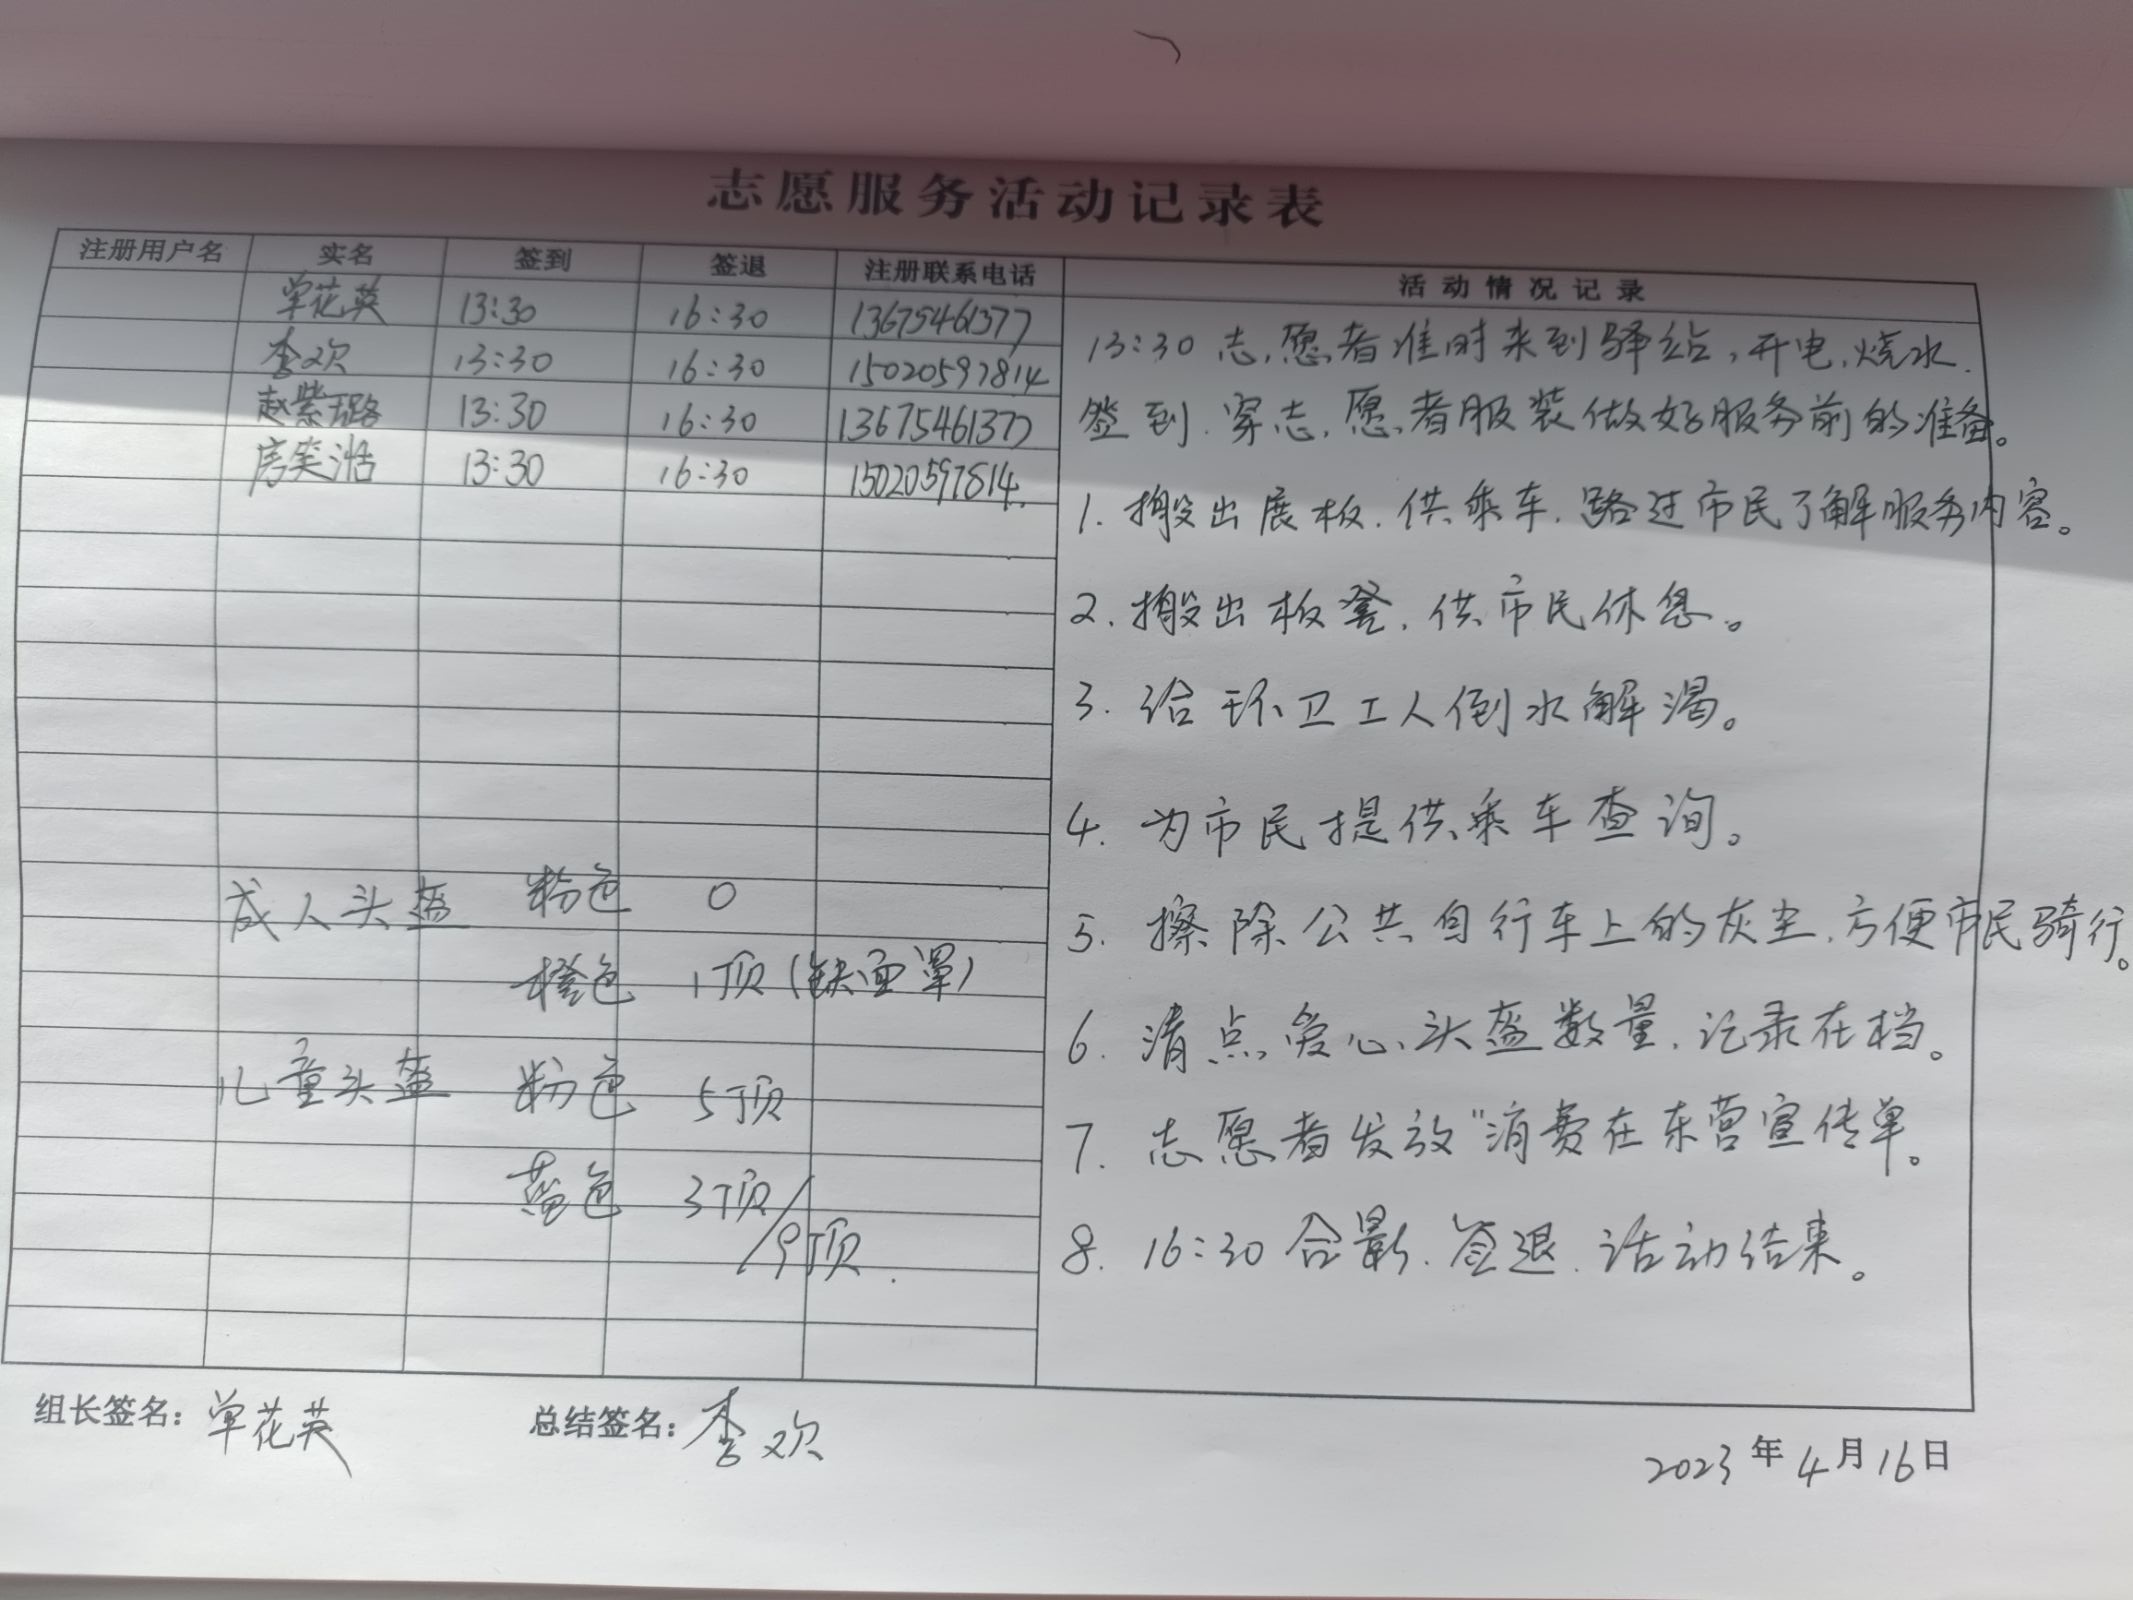 志愿服务活动记录表
注册用户名 实名 签到 签退 注册联系电话 活动情况记录
单花英 13:30 16:30 13675461377
李欢 13:30 16:30 15020597814
赵紫璐 13:30 16:30 13675461377
房奕湉 13:30 16:30 15020597814
13:30 志愿者准时来到驿站,开电,烧水.
签到.穿志愿者服装做好服务前的准备。
1. 搬出展板.供乘车.路过市民了解服务内容。
2. 搬出板凳.供市民休息。
3. 给环卫工人倒水解渴。
4. 为市民提供乘车查询。
5. 擦除公共自行车上的灰尘.方便市民骑行。
6. 清点爱心头盔数量.记录在档。
7. 志愿者发放"消费在东营宣传单。
8. 16:30合影.签退.活动结束。
成人头盔 粉色 0
橙色 1顶(缺面罩)
儿童头盔 粉色 5顶
蓝色 3顶/9顶.
组长签名:单花英 总结签名:李欢
2023年4月16日